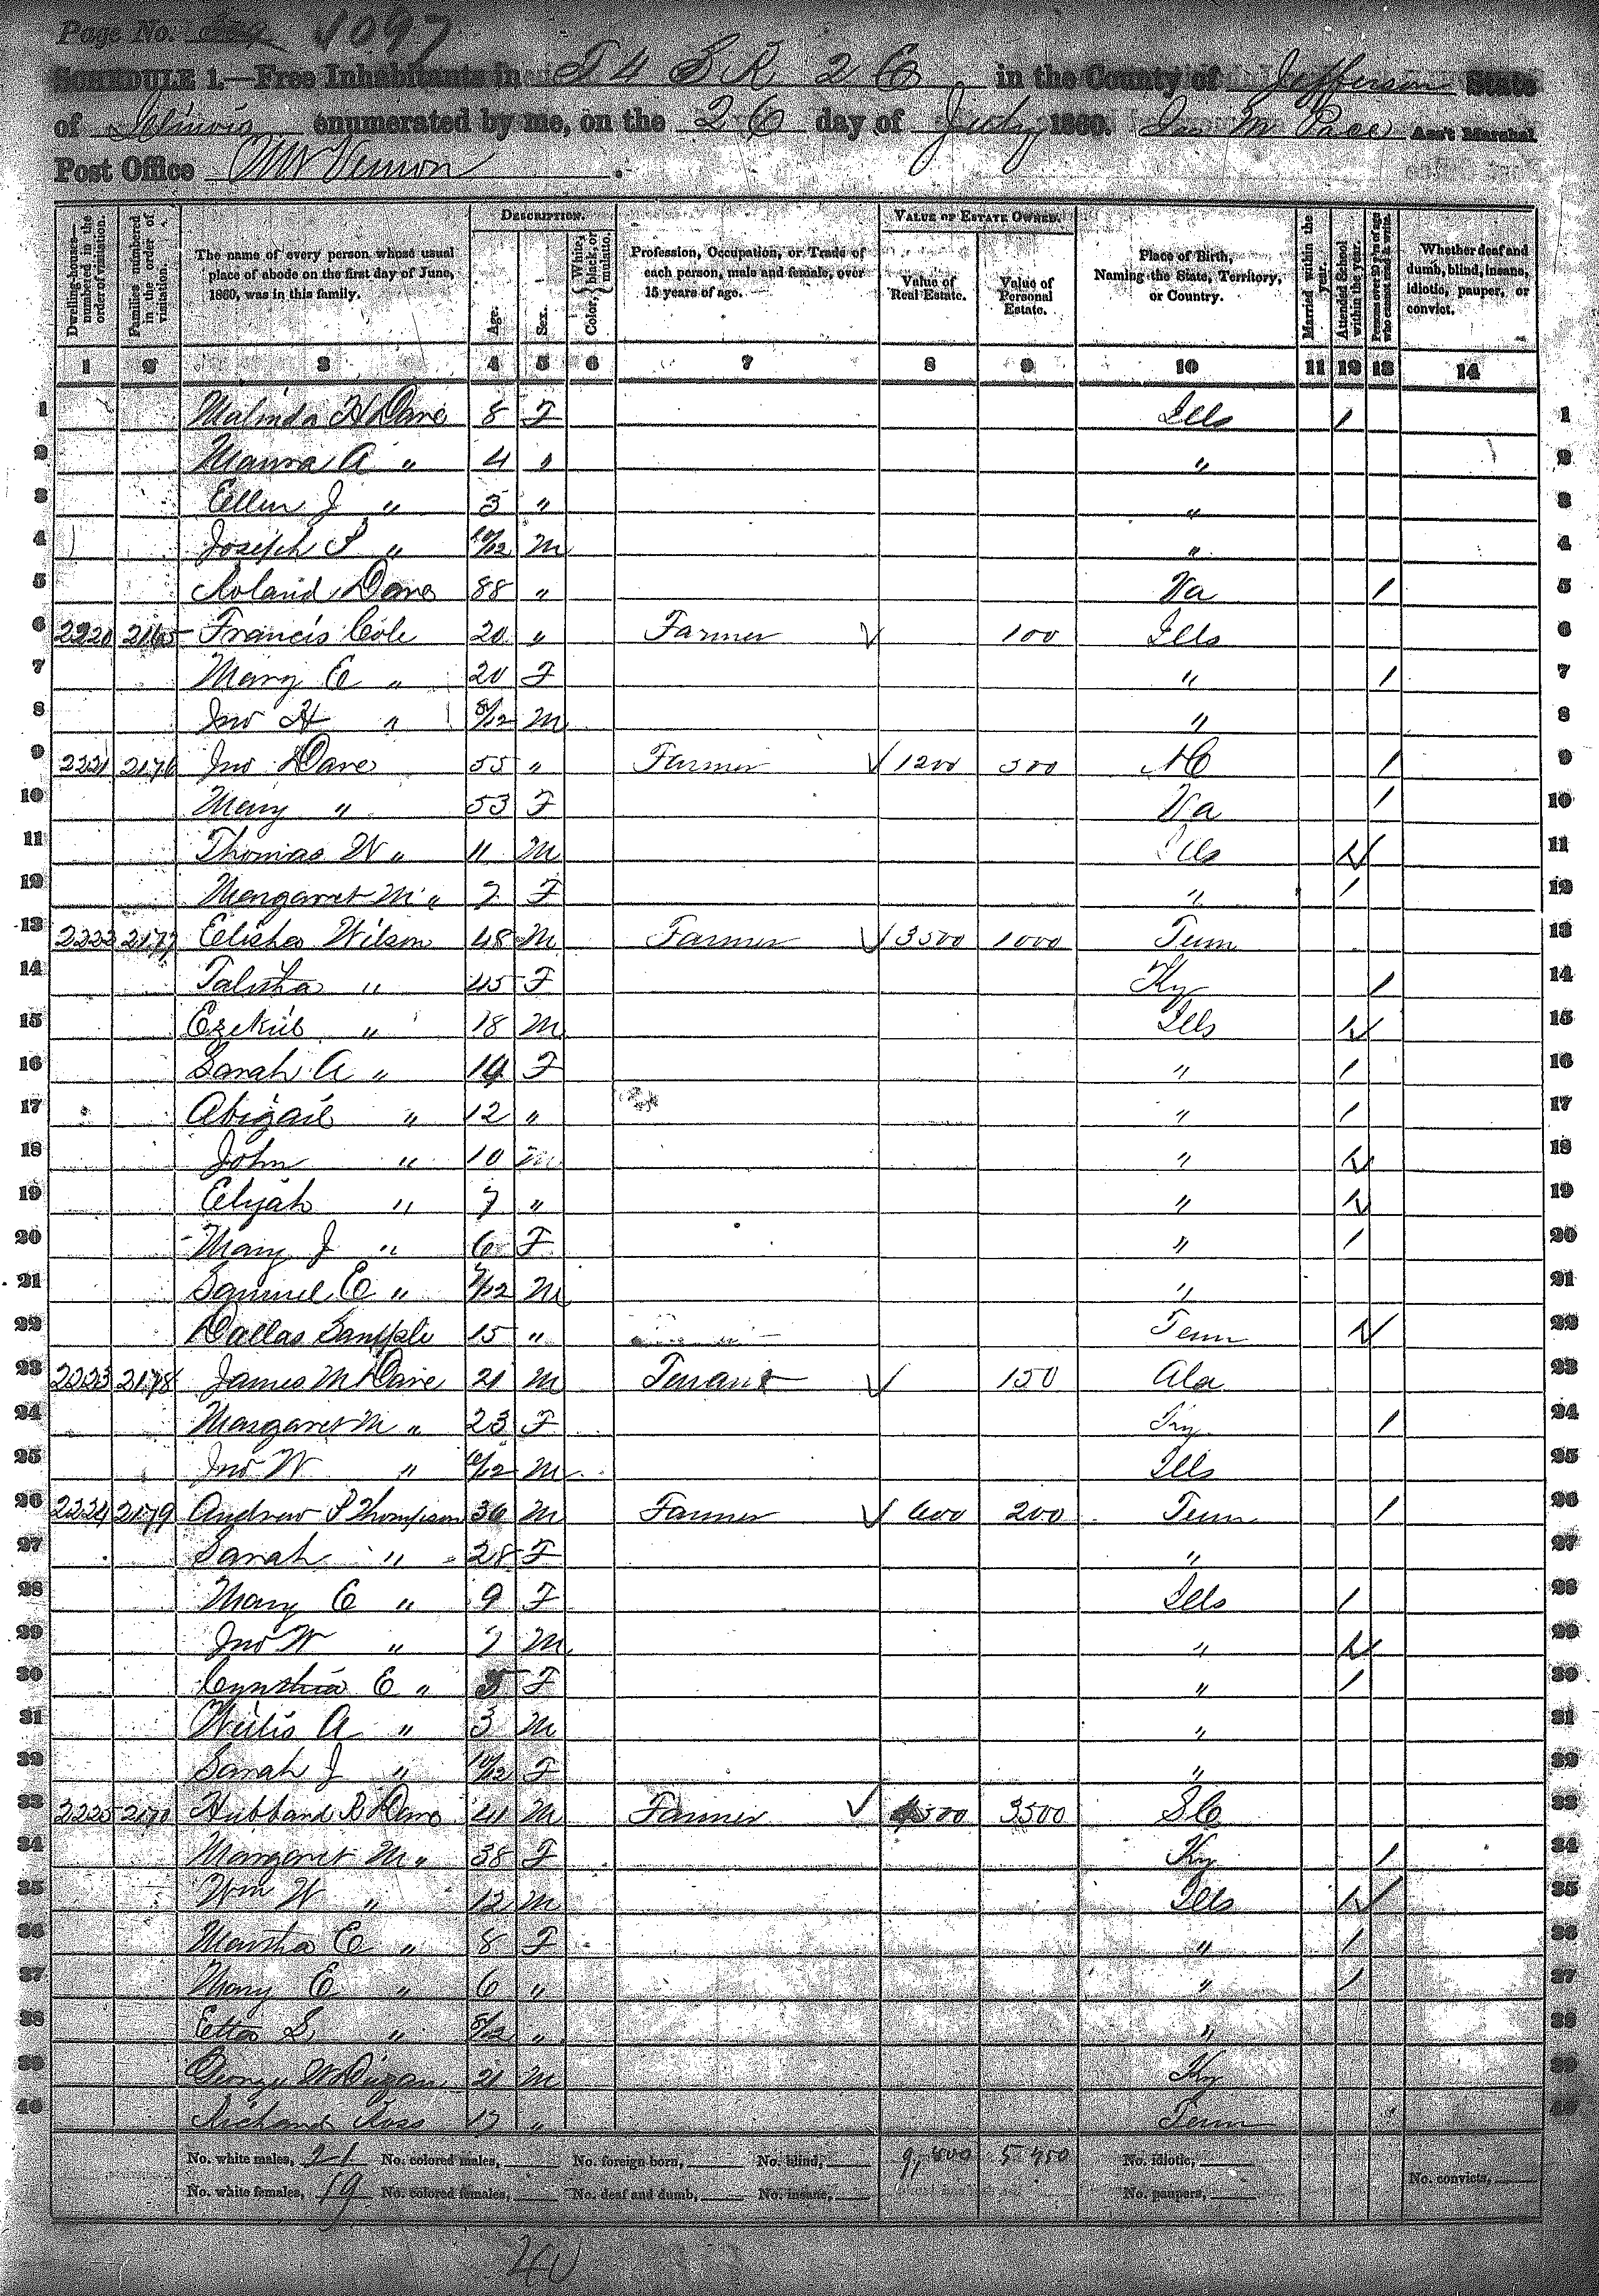 Page No. 1097
SCHEDULE 1.—Free Inhabitants in T 4 S R 2 E in the County of Jefferson State
of Illinois enumerated by me, on the 26 day of July 1860. Jno M Pace Ass't Marshal
Post Office Mt Vernon
Dwelling-house—numbered in the order of visitation. Families numbered in the order of visitation. The name of every person whose usual place of abode on the first day of June, 1860, was in this family. DESCRIPTION. Age. Sex. Color, White, black, or mulatto. Profession, Occupation, or Trade of each person, male and female, over 15 years of age. VALUE OF ESTATE OWNED. Value of Real Estate. Value of Personal Estate. Place of Birth, Naming the State, Territory, or Country. Married within the year. Attended School within the year. Persons over 20 y'rs of age who cannot read & write. Whether deaf and dumb, blind, insane, idiotic, pauper, or convict.
1 2 3 4 5 6 7 8 9 10 11 12 13 14
1 Malinda H Dare 8 F Ills / 1
2 A " 4 " " 2
3 Ellen J " 3 " " 3
4 Joseph S " 10/12 M " 4
5 Roland Dare 88 " Va / 5
6 2220 2165 Francis Cole 20 " Farmer 100 Ills 6
7 Mary E " 20 F " / 7
8 Jno H " 8/12 M " 8
9 2221 2176 Jno Dare 55 " Farmer 1200 300 NC / 9
10 Mary " 53 F Va / 10
11 Thomas W " 11 M Ills / 11
12 Margaret M " 7 F " / 12
13 2222 2177 Elisha Wilson 48 M Farmer 3500 1000 Tenn 13
14 Talitha " 45 F Ky / 14
15 Ezekiel " 18 M Ills / 15
16 Sarah A " 14 F " / 16
17 Abigail " 12 " " / 17
18 John " 10 M " / 18
19 Elijah " 7 " " / 19
20 Mary J " 6 F " / 20
21 Samuel E " 7/12 M " 21
22 Dallas Sample 15 " Tenn / 22
23 2223 2178 James M Dare 21 M Tenant 150 Ala 23
24 Margaret M " 23 F Ky / 24
25 Jno W " /12 M Ills 25
26 2224 2179 Andrew S Thompson 30 M Farmer 600 200 Tenn / 26
27 Sarah " 28 F " 27
28 Mary E " 9 F Ills / 28
29 Jno W " 7 M " / 29
30 Cynthia E " 5 F " / 30
31 Willis A " 3 M " 31
32 Sarah J " 10/12 F " 32
33 2225 2170 Hubbard R Dare 41 M Farmer 4500 3500 SC 33
34 Margaret M " 38 F Ky / 34
35 Wm W " 12 M Ills / 35
36 Martha E " 8 F " / 36
37 Mary E " 6 " " / 37
38 Etta S " 8/12 " " 38
39 George W 21 M Ky 39
40 Richard Ross 17 " Tenn 40
No. white males, 21 No. colored males, No. foreign born, No. blind, 9,800 5 750 No. idiotic, No. convicts,
No. white females, 19 No. colored females, No. deaf and dumb, No. insane, No. paupers,
40